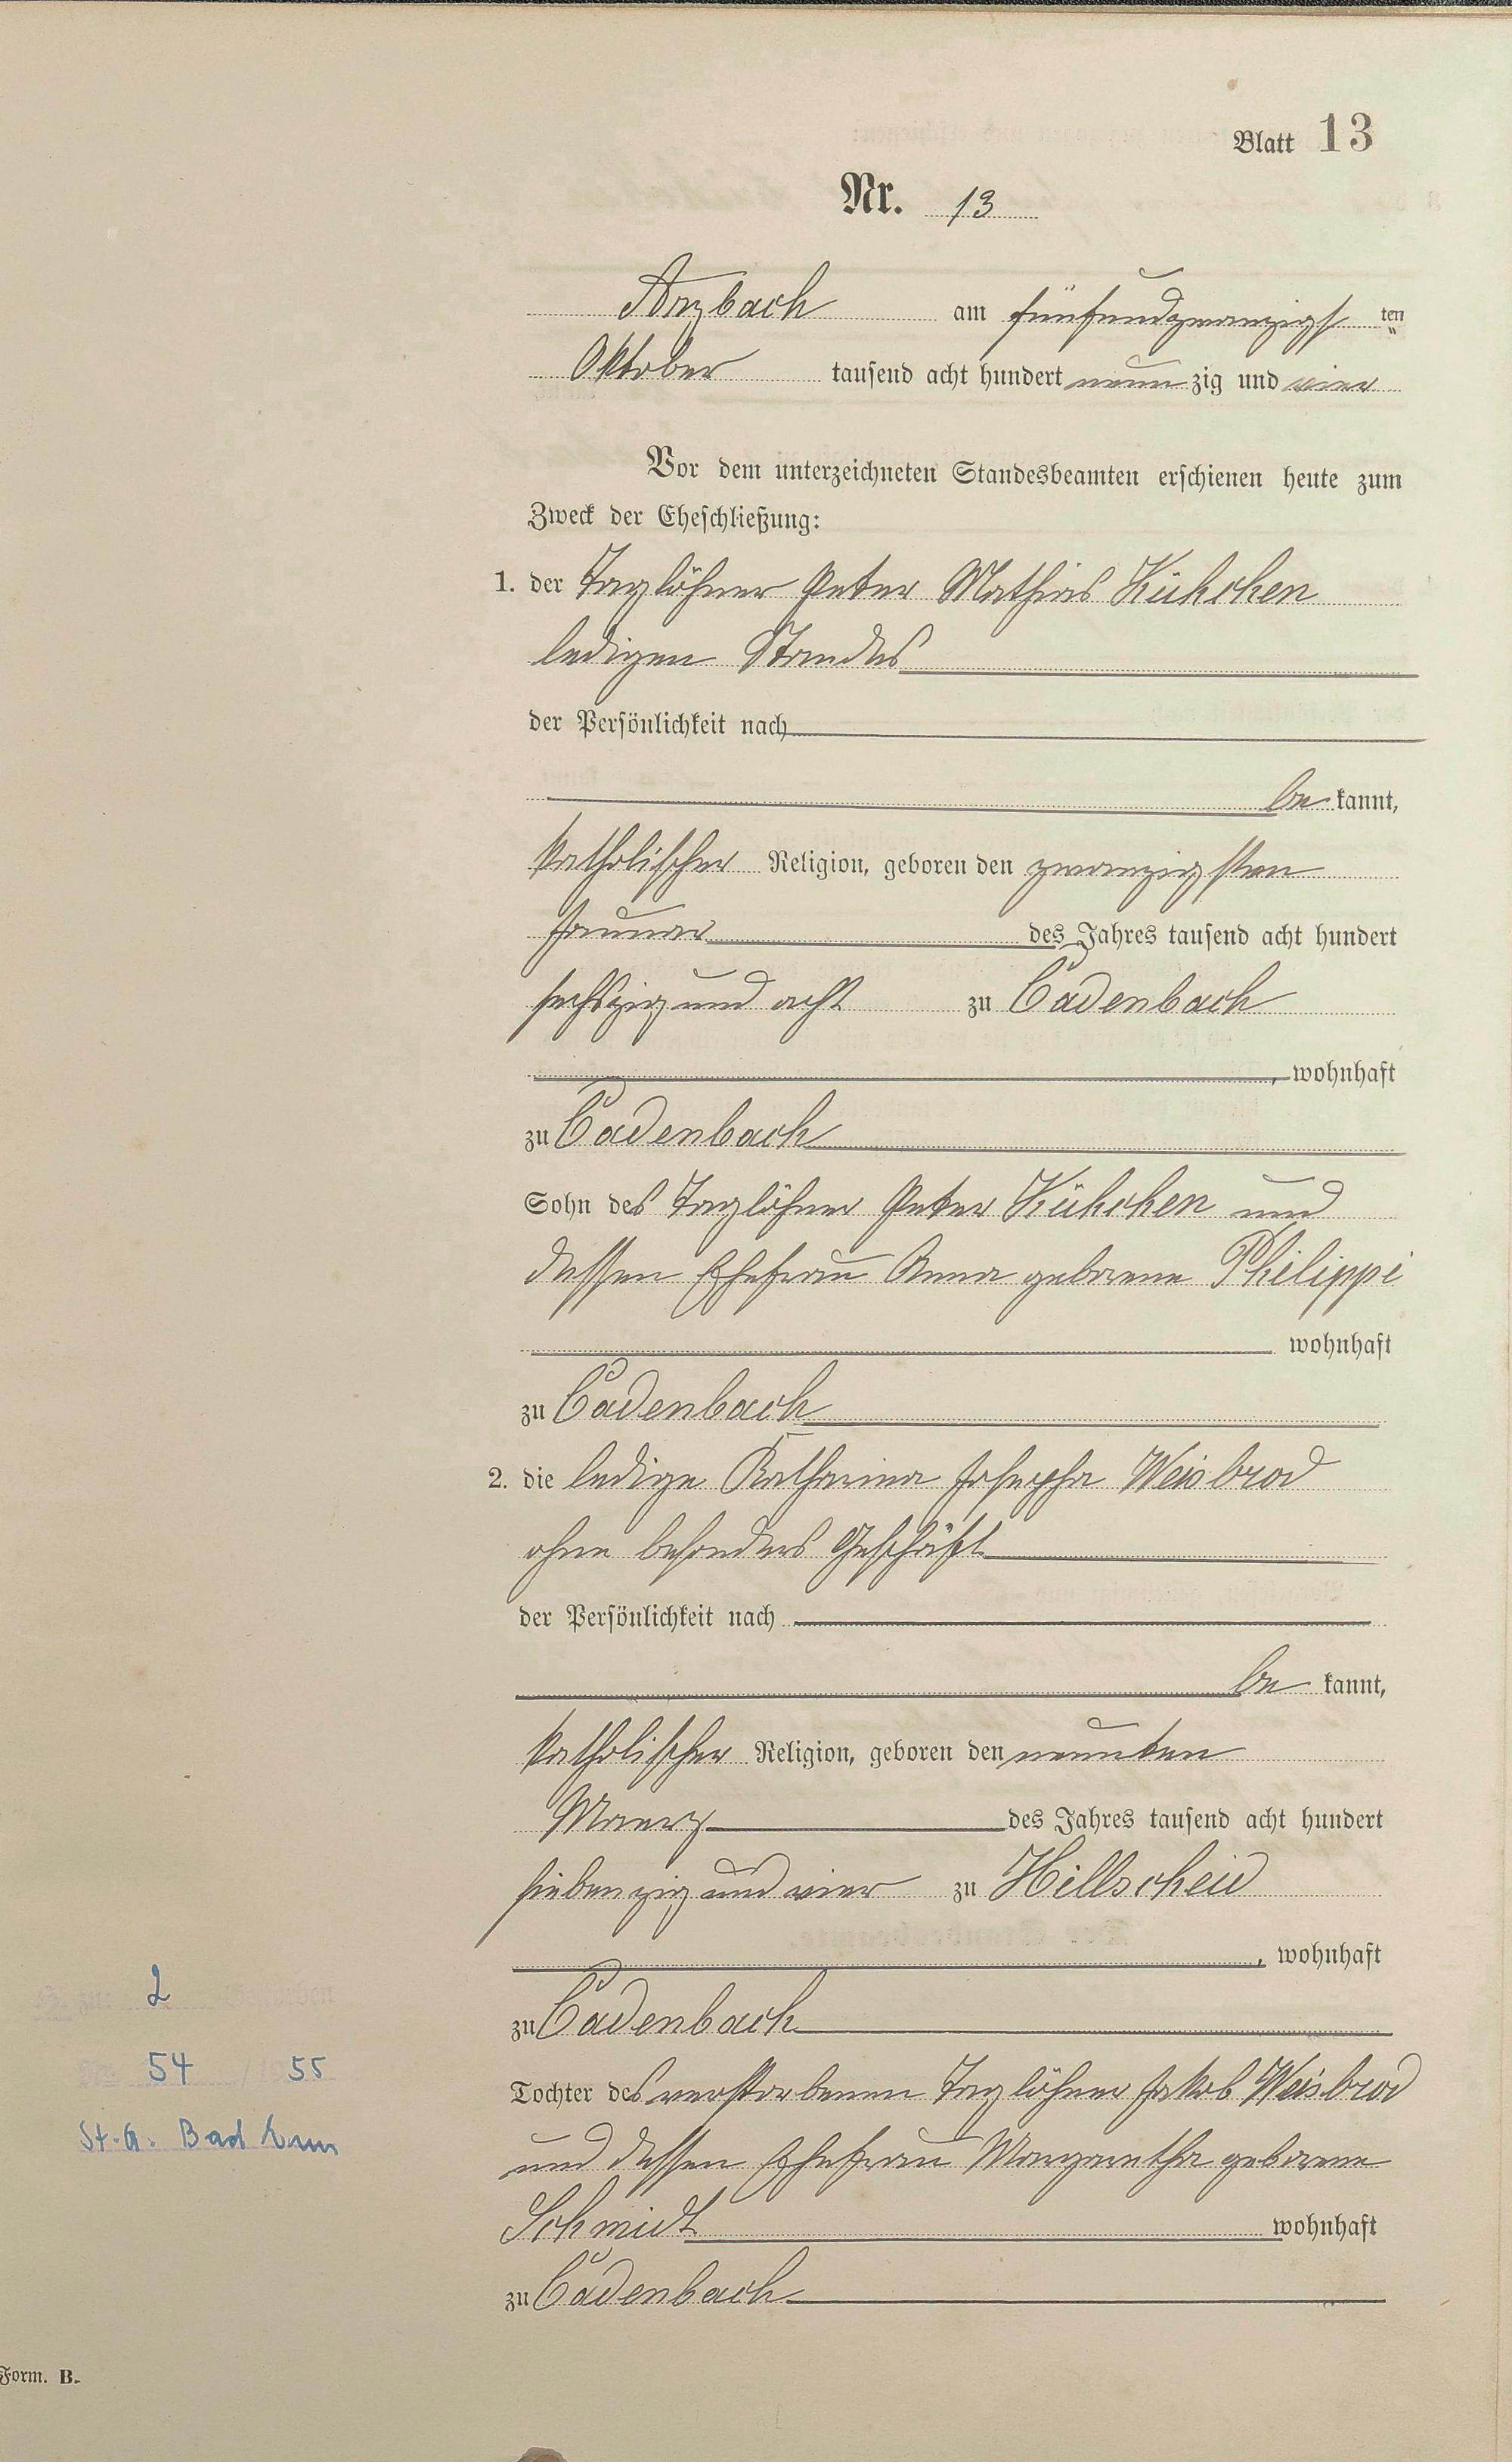 Blatt 13
Nr. 13
Arzbach am fünfundzwanzigst ten
Oktober tausend acht hundert neun zig und vier
Vor dem unterzeichneten Standesbeamten erschienen heute zum
Zweck der Eheschließung:
1. der Taglöhner Peter Mathias Kühchen
ledigen Standes
der Persönlichkeit nach
be kannt,
katholischer Religion, geboren den zwanzigsten
Januar des Jahres tausend acht hundert
sechszig und acht zu Cadenbach
, wohnhaft
zu Cadenbach
Sohn des Taglöhner Peter Kühchen und
dessen Ehefrau Anna geborene Philippi
wohnhaft
zu Cadenbach
2. die ledige Katharina Josepha Weisbrod
ohne besonders Geschäft
der Persönlichkeit nach
be kannt,
katholischer Religion, geboren den neunten
Maerz des Jahres tausend acht hundert
siebenzig und vier zu Hillscheid
, wohnhaft
zu Cadenbach
Tochter des verstorbenen Taglöhner Jakob Weisbrod
und dessen Ehefrau Margaretha geborene
Schmidt wohnhaft
zu Cadenbach
2
54 / 55
St. A. Bad Ems
Form. B.